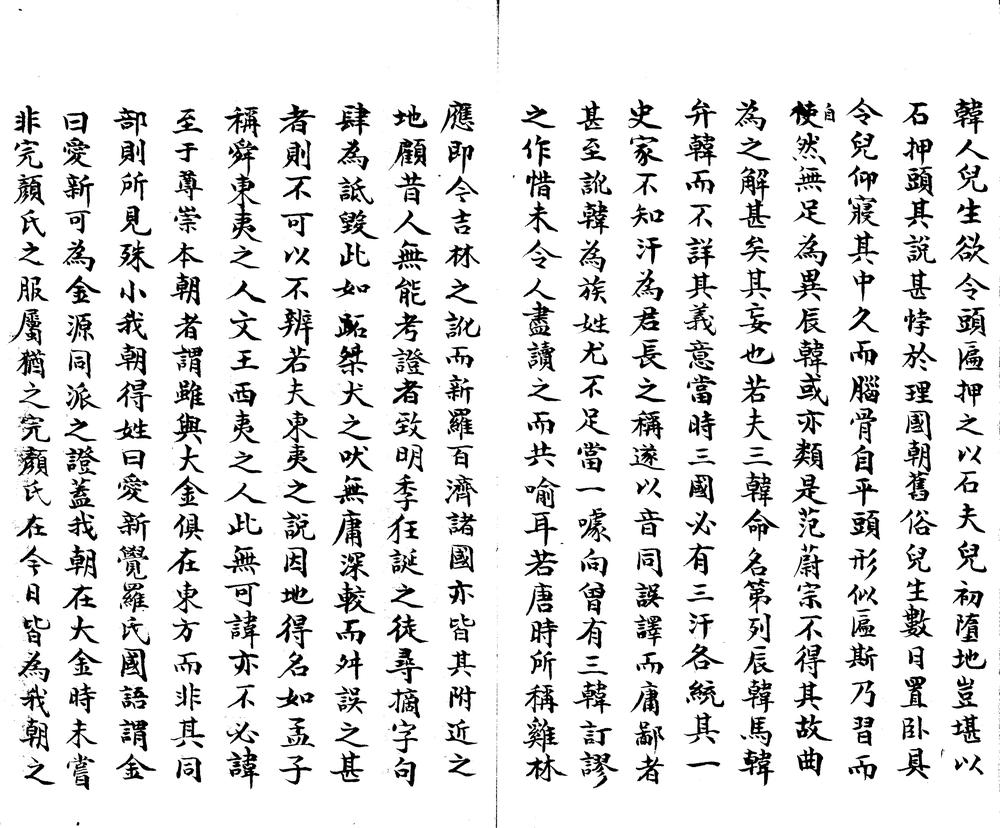 韓人兒生欲令頭匾押之以石夫兒初墮地豈堪以
石押頭其說甚悖於理國朝舊俗兒生數日置臥具
令兒仰寢其中久而腦骨自平頭形似匾斯乃習而
使然無足為異辰韓或亦類是范蔚宗不得其故曲
自
為之解甚矣其妄也若夫三韓命名第列辰韓馬韓
弁韓而不詳其義意當時三國必有三汗各統其一
史家不知汗為君長之稱遂以音同誤譯而庸鄙者
甚至訛韓為族姓尤不足當一噱向曾有三韓訂謬
之作惜未令人盡讀之而共喻耳若唐時所稱雞林
應即今吉林之訛而新羅百濟諸國亦皆其附近之
地顧昔人無能考證者致明季狂誕之徒尋摘字句
肆為詆毀此如跖桀犬之吠無庸深較而舛誤之甚
者則不可以不辨若夫東夷之說因地得名如孟子
稱舜東夷之人文王西夷之人此無可諱亦不必諱
至于尊崇本朝者謂雖與大金俱在東方而非其同
部則所見殊小我朝得姓曰愛新覺羅氏國語謂金
曰愛新可為金源同派之證蓋我朝在大金時未嘗
非完顏氏之服屬猶之完顏氏在今日皆為我朝之